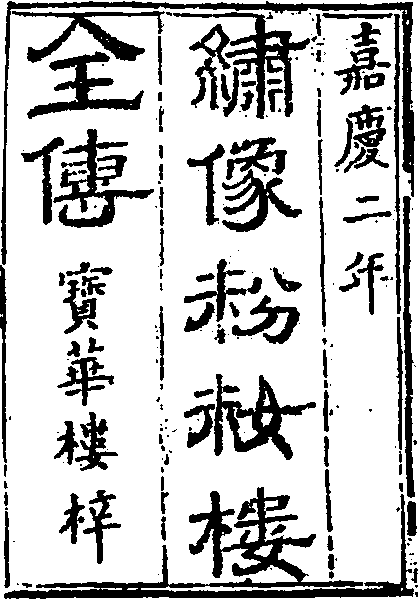 嘉慶二年
繡像粉粧樓
全傳
寶華樓梓